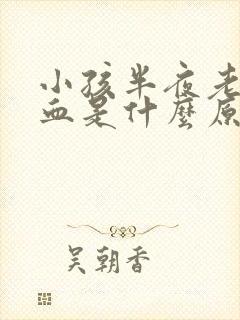 小孩半夜老
血是什麼原
吴朝香